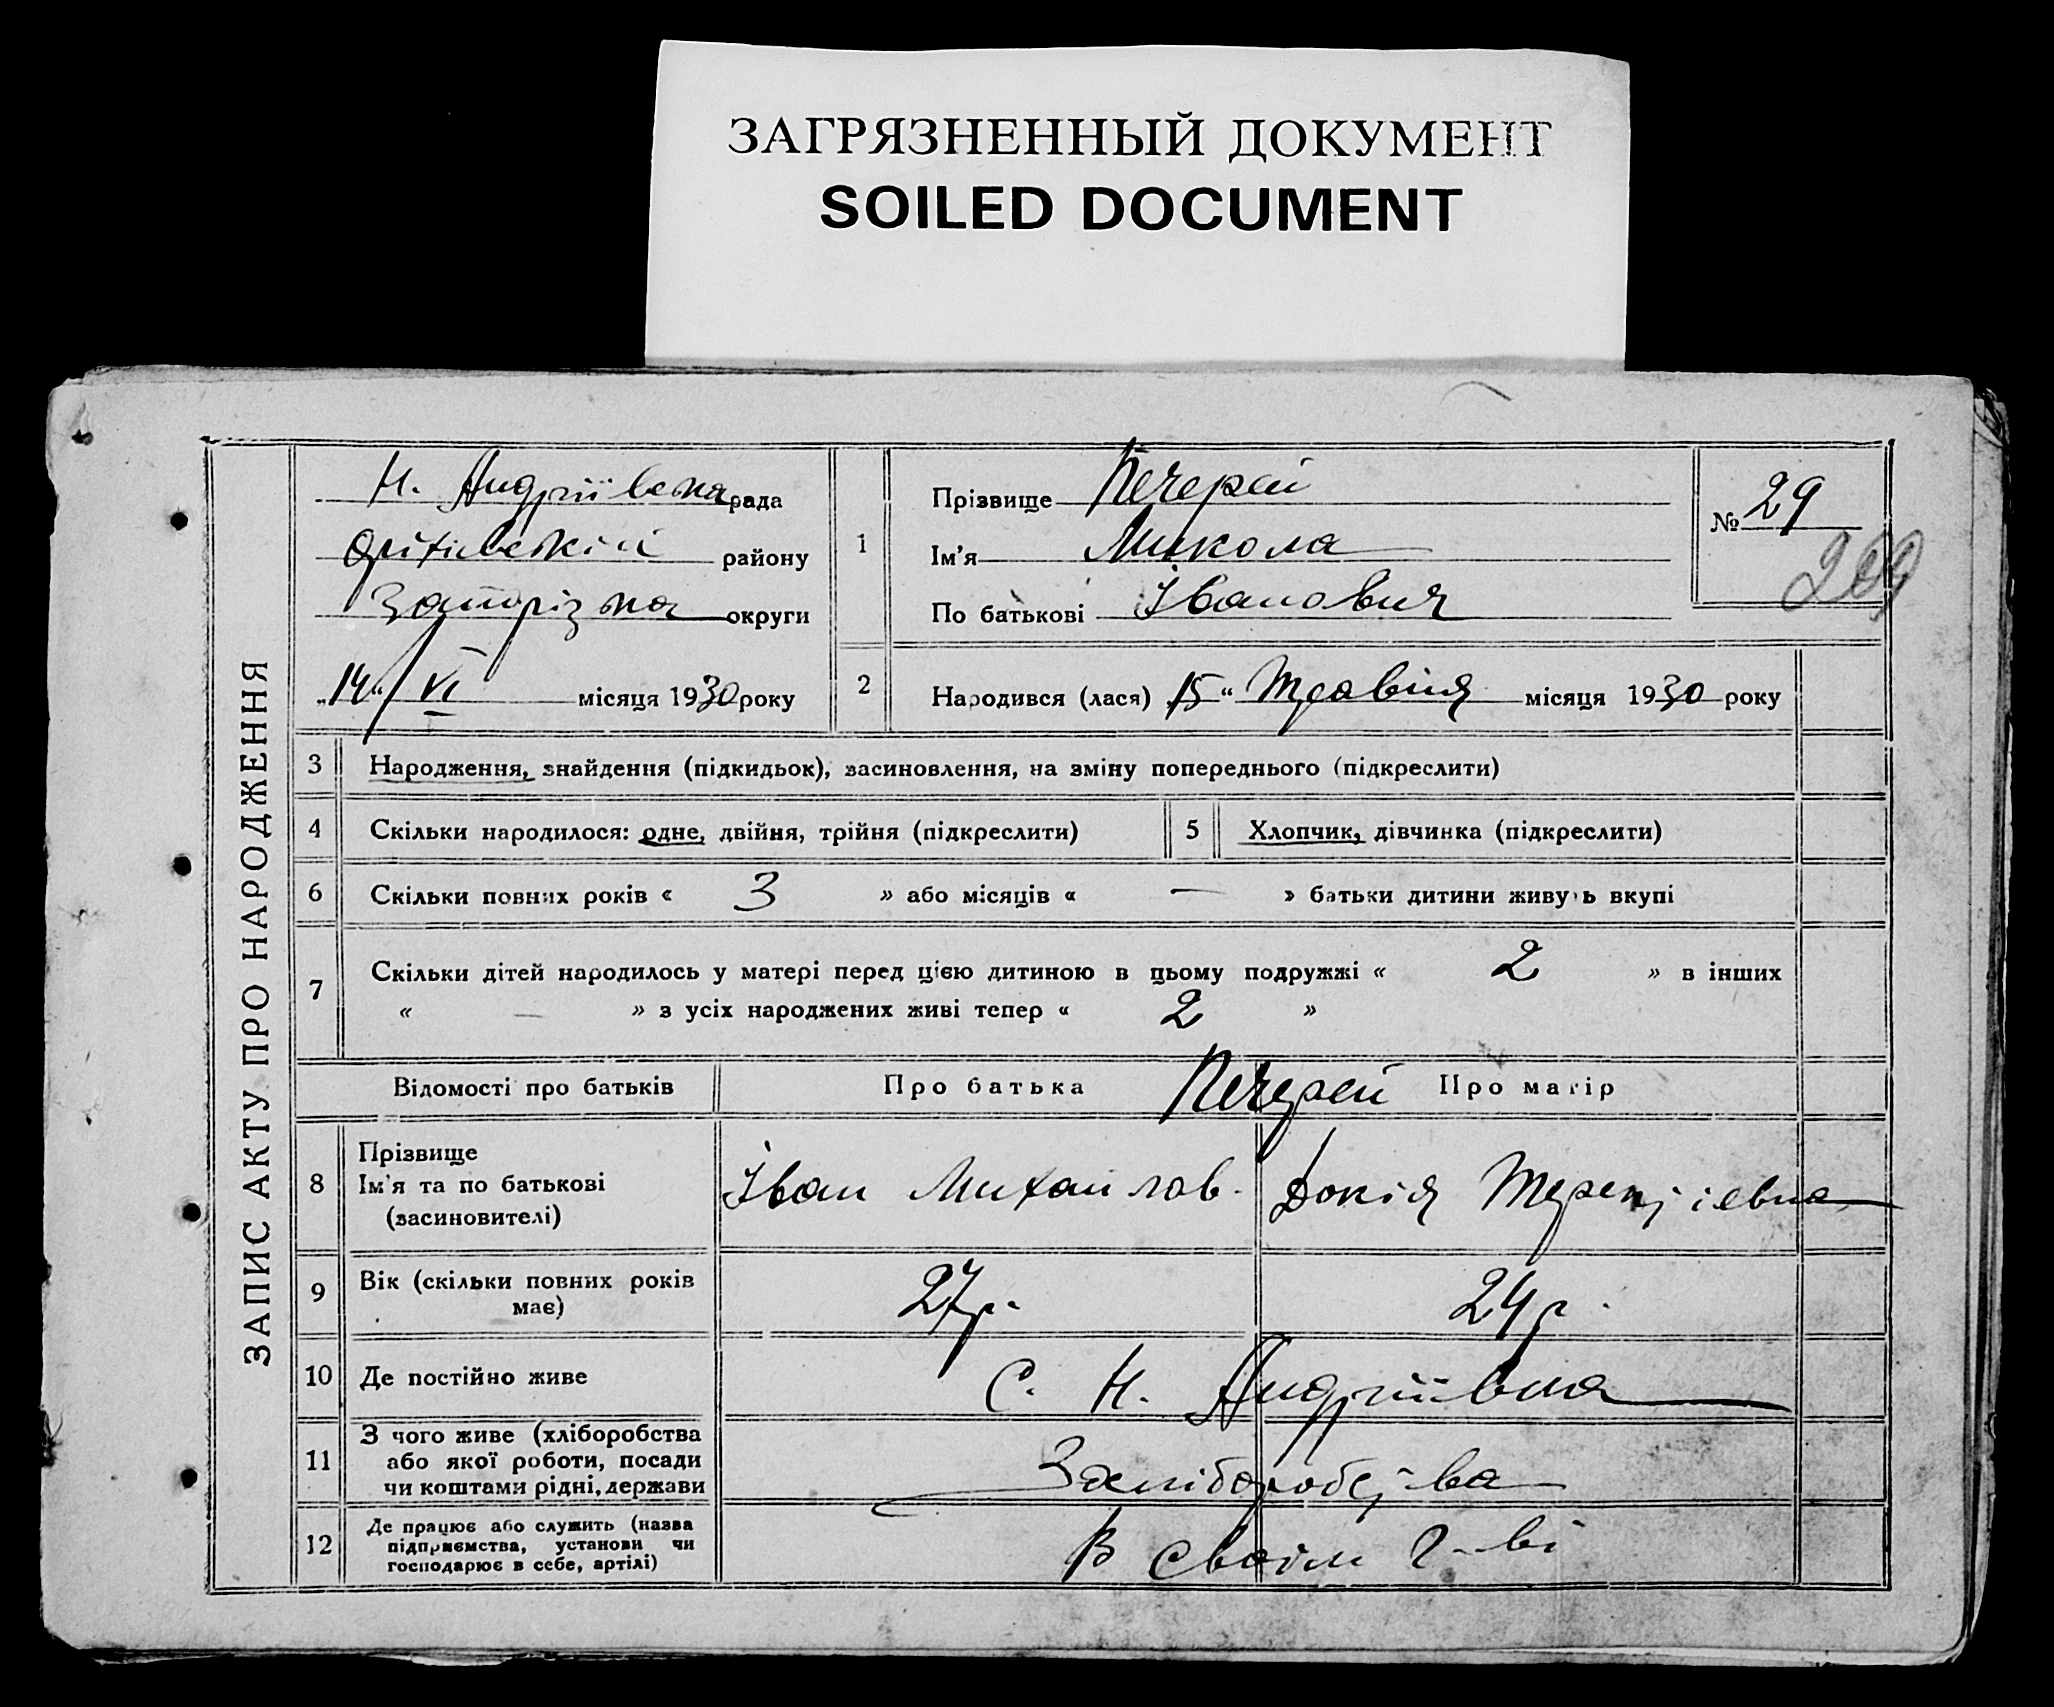 ЗАГРЯЗНЕННЫЙ ДОКУМЕНТ
SOILED DOCUMENT
ЗАПИС АКТУ ПРО НАРОДЖЕННЯ
Н. Андріївська рада
Оріхівський району
Запорізька округи
„14“ / VI місяця 1930 року
1
Прізвище Печерей
Ім'я Микола
По батькові Іванович
№ 29
209
2 Народився (лася) „15“ Травня місяця 1930 року
3 Народження, знайдення (підкидьок), засиновлення, на зміну попереднього (підкреслити)
4 Скільки народилося: одне, двійня, трійня (підкреслити)
5 Хлопчик, дівчинка (підкреслити)
6 Скільки повних років « 3 » або місяців « — » батьки дитини живуть вкупі
7 Скільки дітей народилось у матері перед цією дитиною в цьому подружжі « 2 » в інших
« — » з усіх народжених живі тепер « 2 »
Відомості про батьків Про батька Печерей Про матір
8 Прізвище
Ім'я та по батькові
(засиновителі)
Іван Михайлов. Докія Терентіевна
9 Вік (скільки повних років
має)
27 р. 24 р.
10 Де постійно живе С. Н. Андріївка
11 З чого живе (хліборобства
або якої роботи, посади
чи коштами рідні, держави
З хліборобства
12 Де працює або служить (назва
підприємства, установи чи
господарює в себе, артілі)
В своїм г-ві